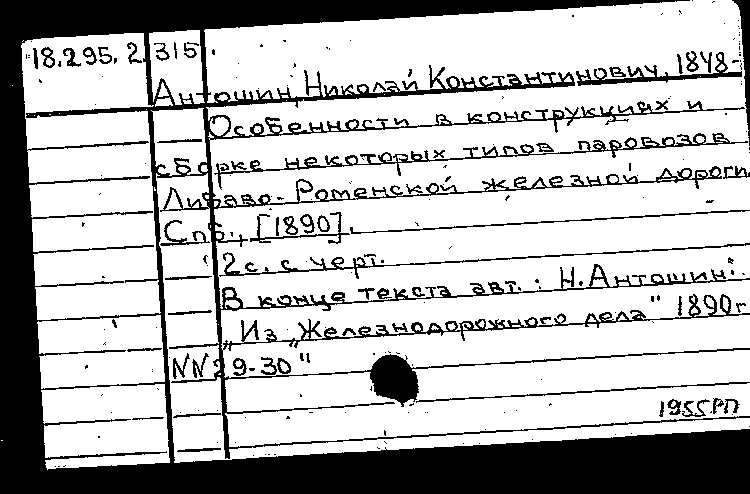 18.295.2.315.
Антошин, Николай Константинович, 1848-
Особенности в конструкциях и
сборке некоторых типов паровозов
Либаво-Роменской железной дороги.
Спб., [1890].
2с. с черт.
В конце текста авт.: Н. Антошин.
„Из „Железнодорожного дела" 1890г
NN 29-30"
1955РП